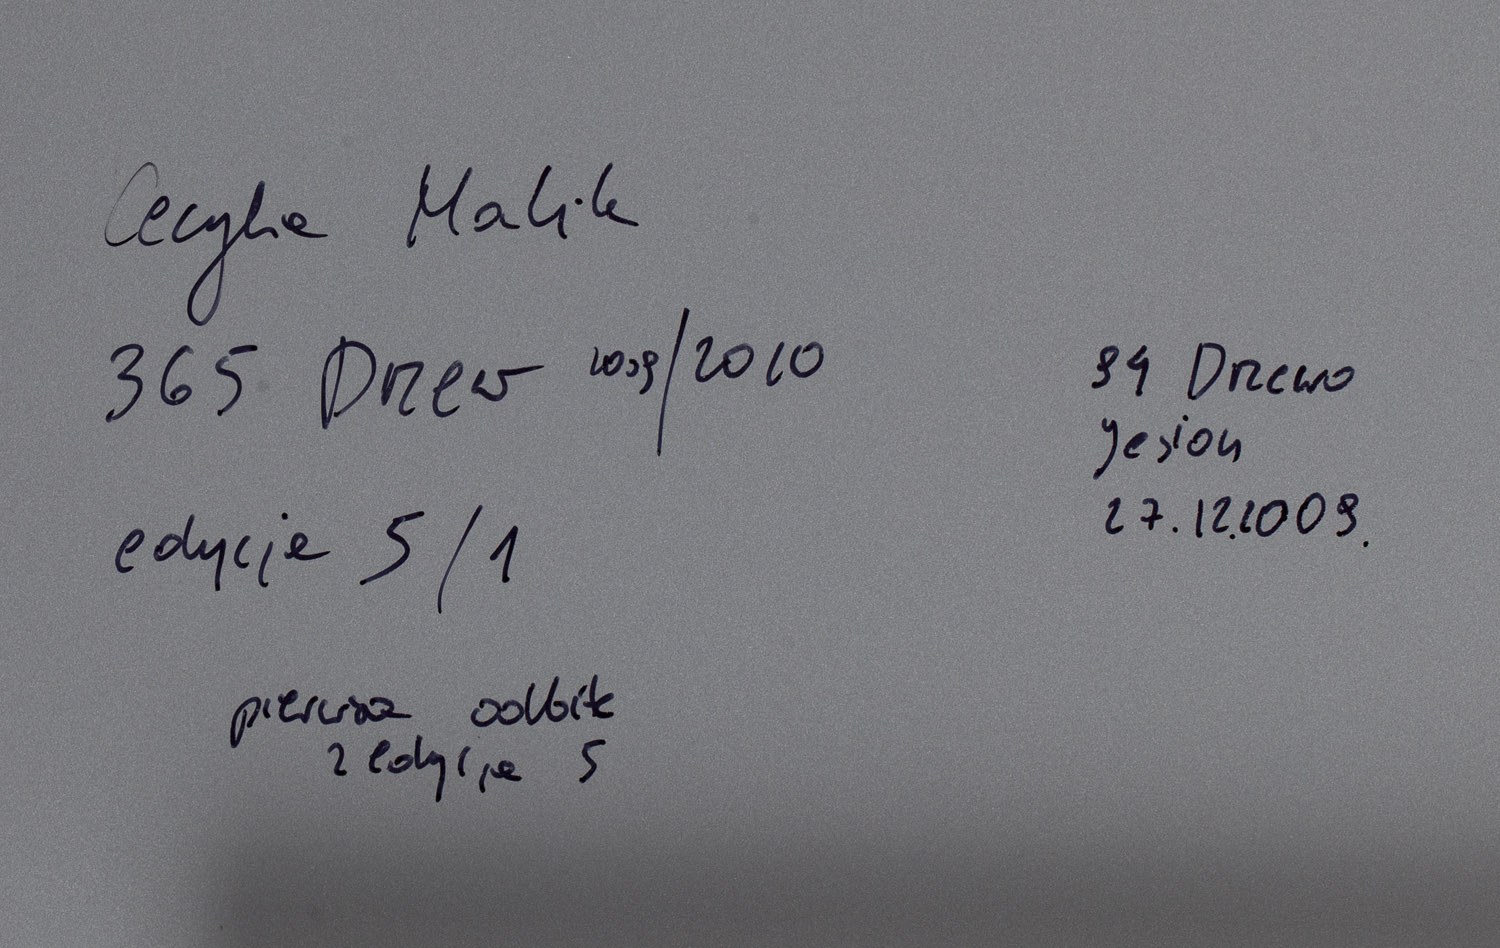 Cecylia Malik
365 Drzew 2009/2010
edycja 5/1
pierwsza odbitk
z edycja 5
94 Drzewo
Jesion
27.12.2009.